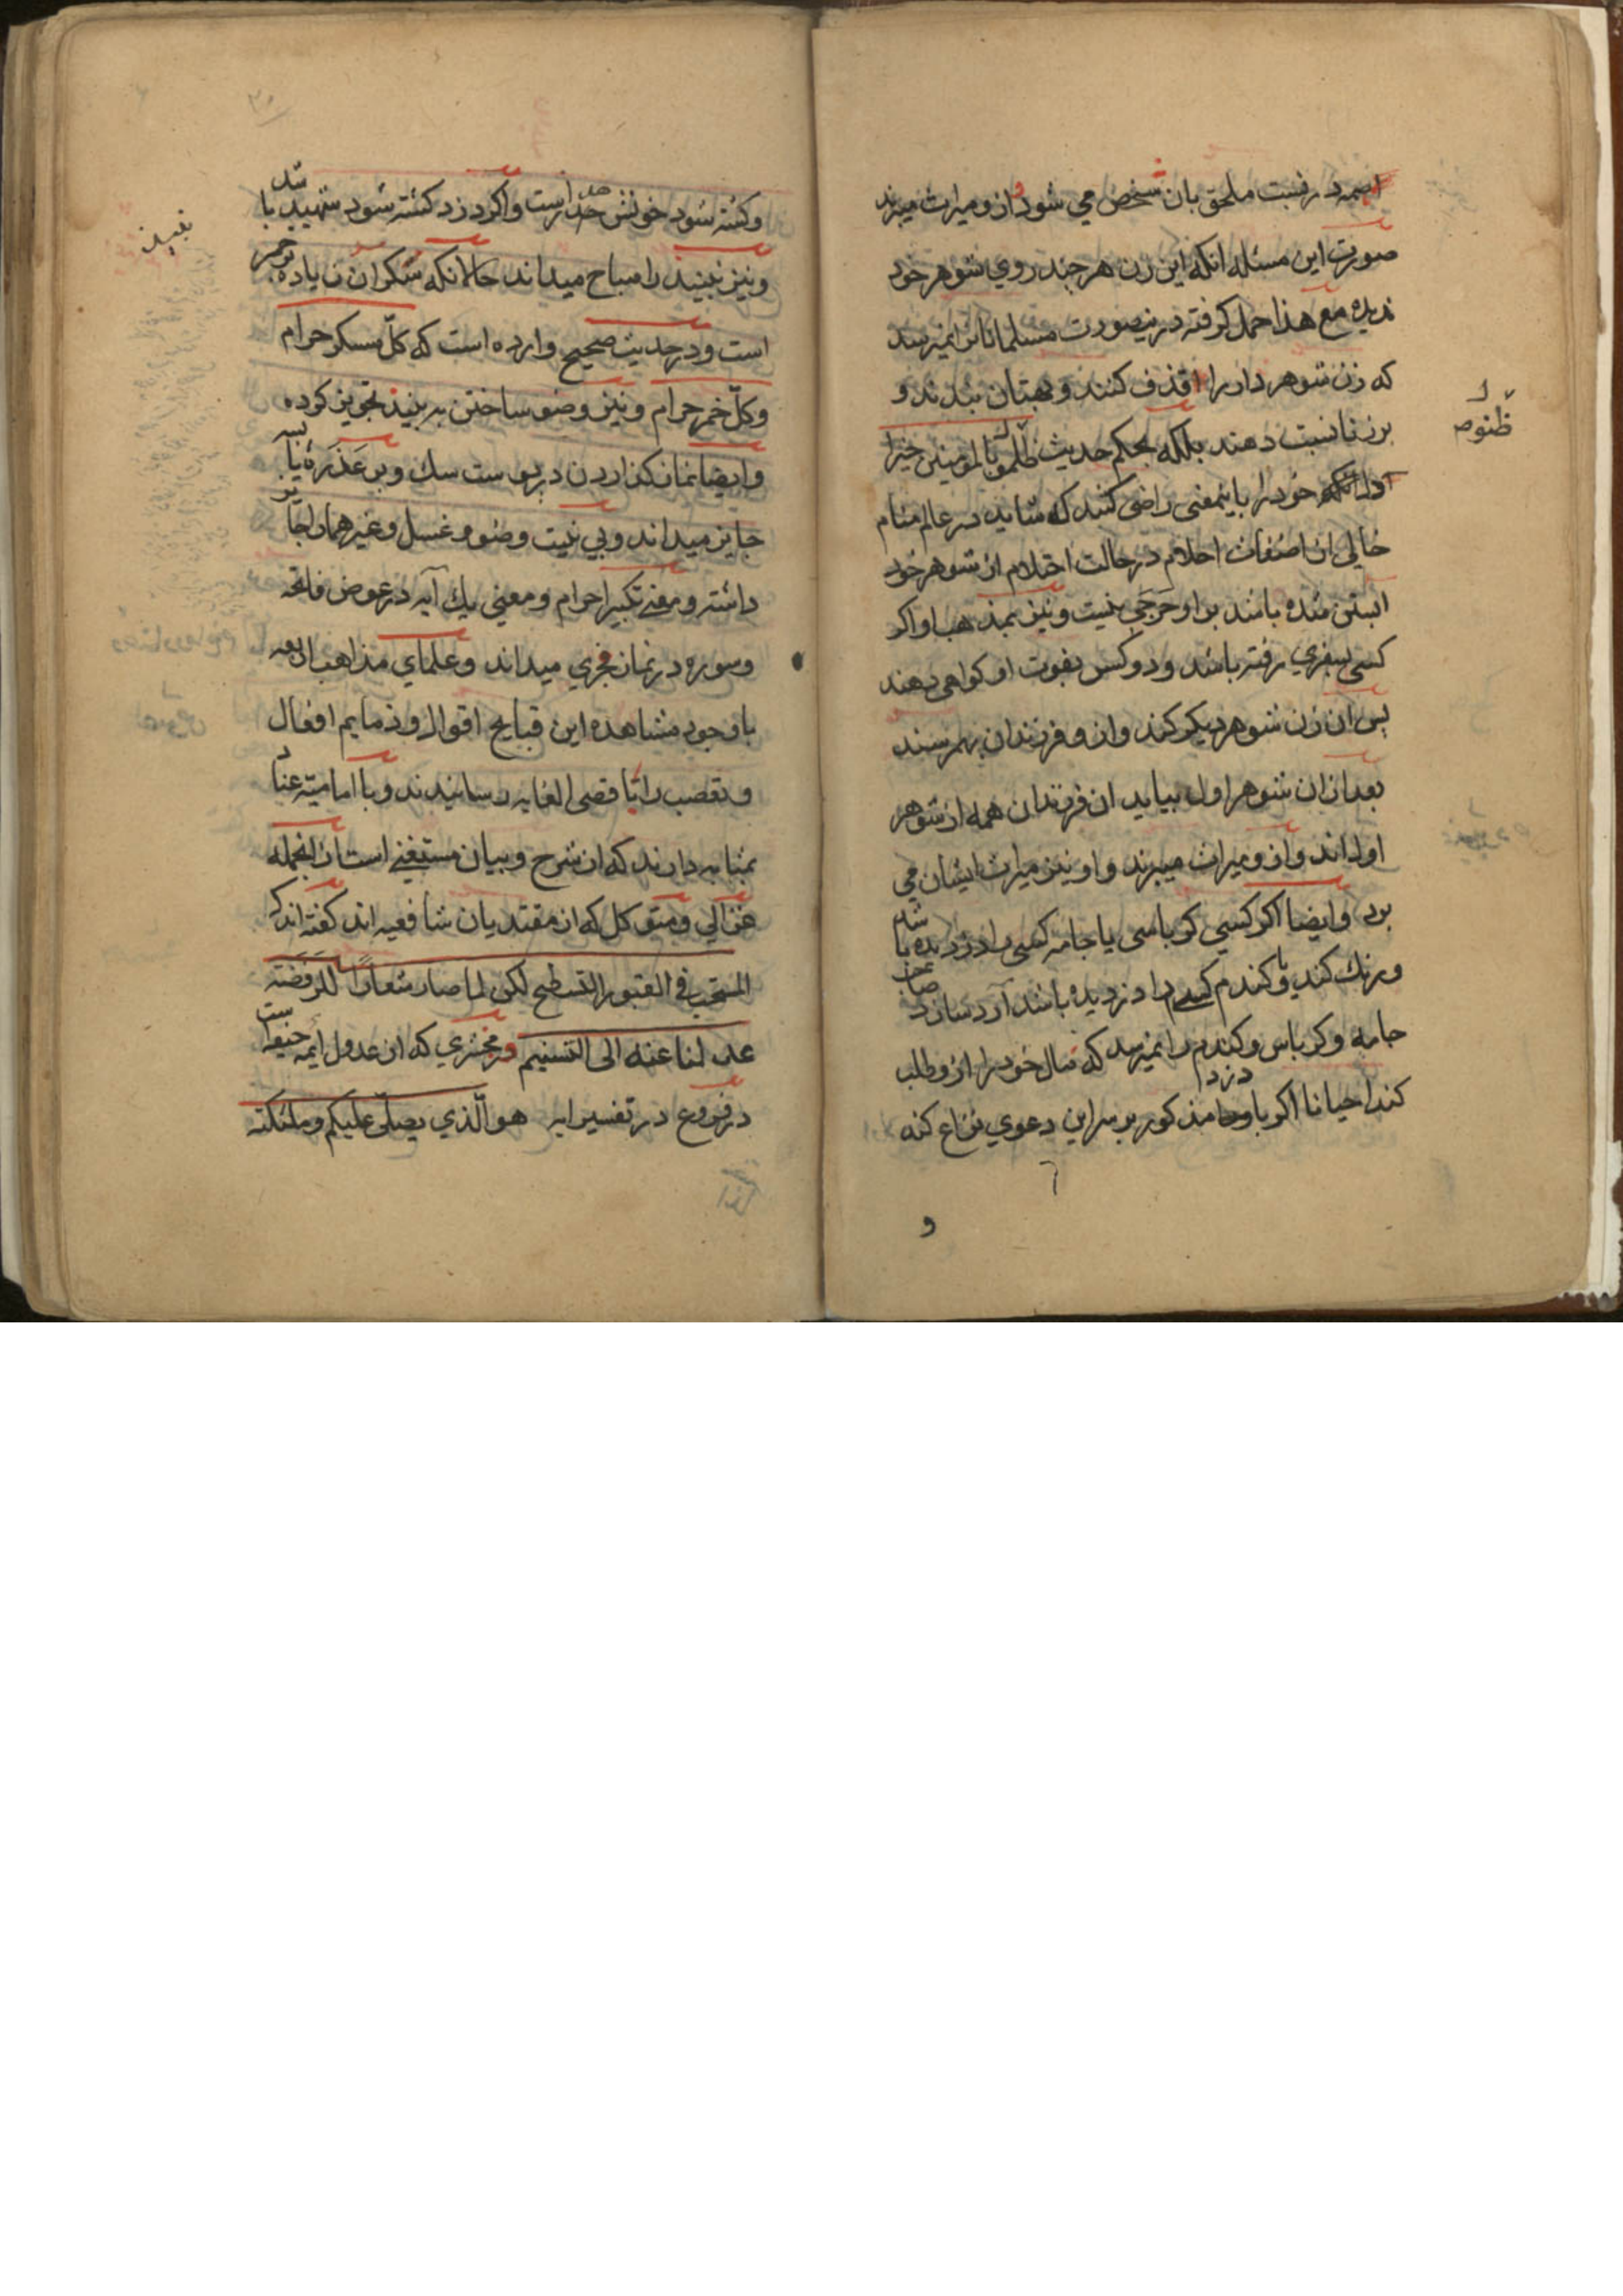 همه در نسبت ملحق بان شخص مي شود و از و ميراث ميبرند
صورت اين مسئله انكه اين زن هر چند روي شوهر خود
نديده مع هذا حمل كرفته درينصورت مسلمانانرا نميرسد
كه زن شوهر دار را قذف كنند و بهتان بندند و
بزنا نسبت دهند بلكه بحكم حديث ظنوا بالمومنين خيرا
خود را باينمعنى راضى كنند كه شايد در عالم منام
خالي از اضغاث احلام در حالت احتلام از شوهر خود
ابستن شده باشد بر او حرجي نيست و نيز بمذهب او اكر
كسى بسفري رفته باشد و دو كس بفوت او كواهى دهند
پس ان زن شوهر ديكر كند و از و فرزندان بهم رسند
بعد از ان شوهر اول بيايد ان فرزندان همه از شوهر
اول اند و از و ميراث ميبرند و او نيز ميراث ايشان مي
برد و ايضا اكر كسي كرباسى يا جامه كسى را دزديده باشد
و رنك كند يا كندم كسى را دزديده باشد آرد سازد صاحب
جامه و كرباس و كندم را نميرسد كه مال خود را از و طلب
كند احيانا اكر با دزد مذكور بر سر اين دعوي نزاع كند
و
ظنوا
وكشته شود خونش هدر است و اكر دزد كشته شود شهيد باشد
و نيز نبيذ را مباح ميداند حالانكه سكر ان زياده بر خمر
است و در حديث صحيح وارده است كه كلّ مسكر حرام
و كلّ خمر حرام و نيز وضو ساختن به نبيذ تجويز كرده
و ايضا نماز كذاردن در پوست سك و بر عذره يابسه
جايز ميداند و بي نيت وضو و غسل و غيرهما را جايز
داشته و معنى تكبير احرام و معني يك آيه در عوض فاتحه
و سوره در نماز مجزي ميداند و علماي مذاهب اربعه
باوجود مشاهده اين قبايح اقوال و ذمايم افعال
و تعصب را باقصى الغايه رسانيدند و با اماميّه عناد
بمثابه دارند كه از شرح و بيان مستغنى است از انجمله
غزالي و متوكل كه از مقتديان شافعيه اند كفته اند كه
المستحب فى القبور التسطيح لكن لما صار شعارا للرفضة
عدلنا عنه الى التسنيم و زمخشري كه از عدول ايمه حنيفه است
در فروع در تفسير ايه هو الّذي يصلّى عليكم و ملئكته
نبيذ